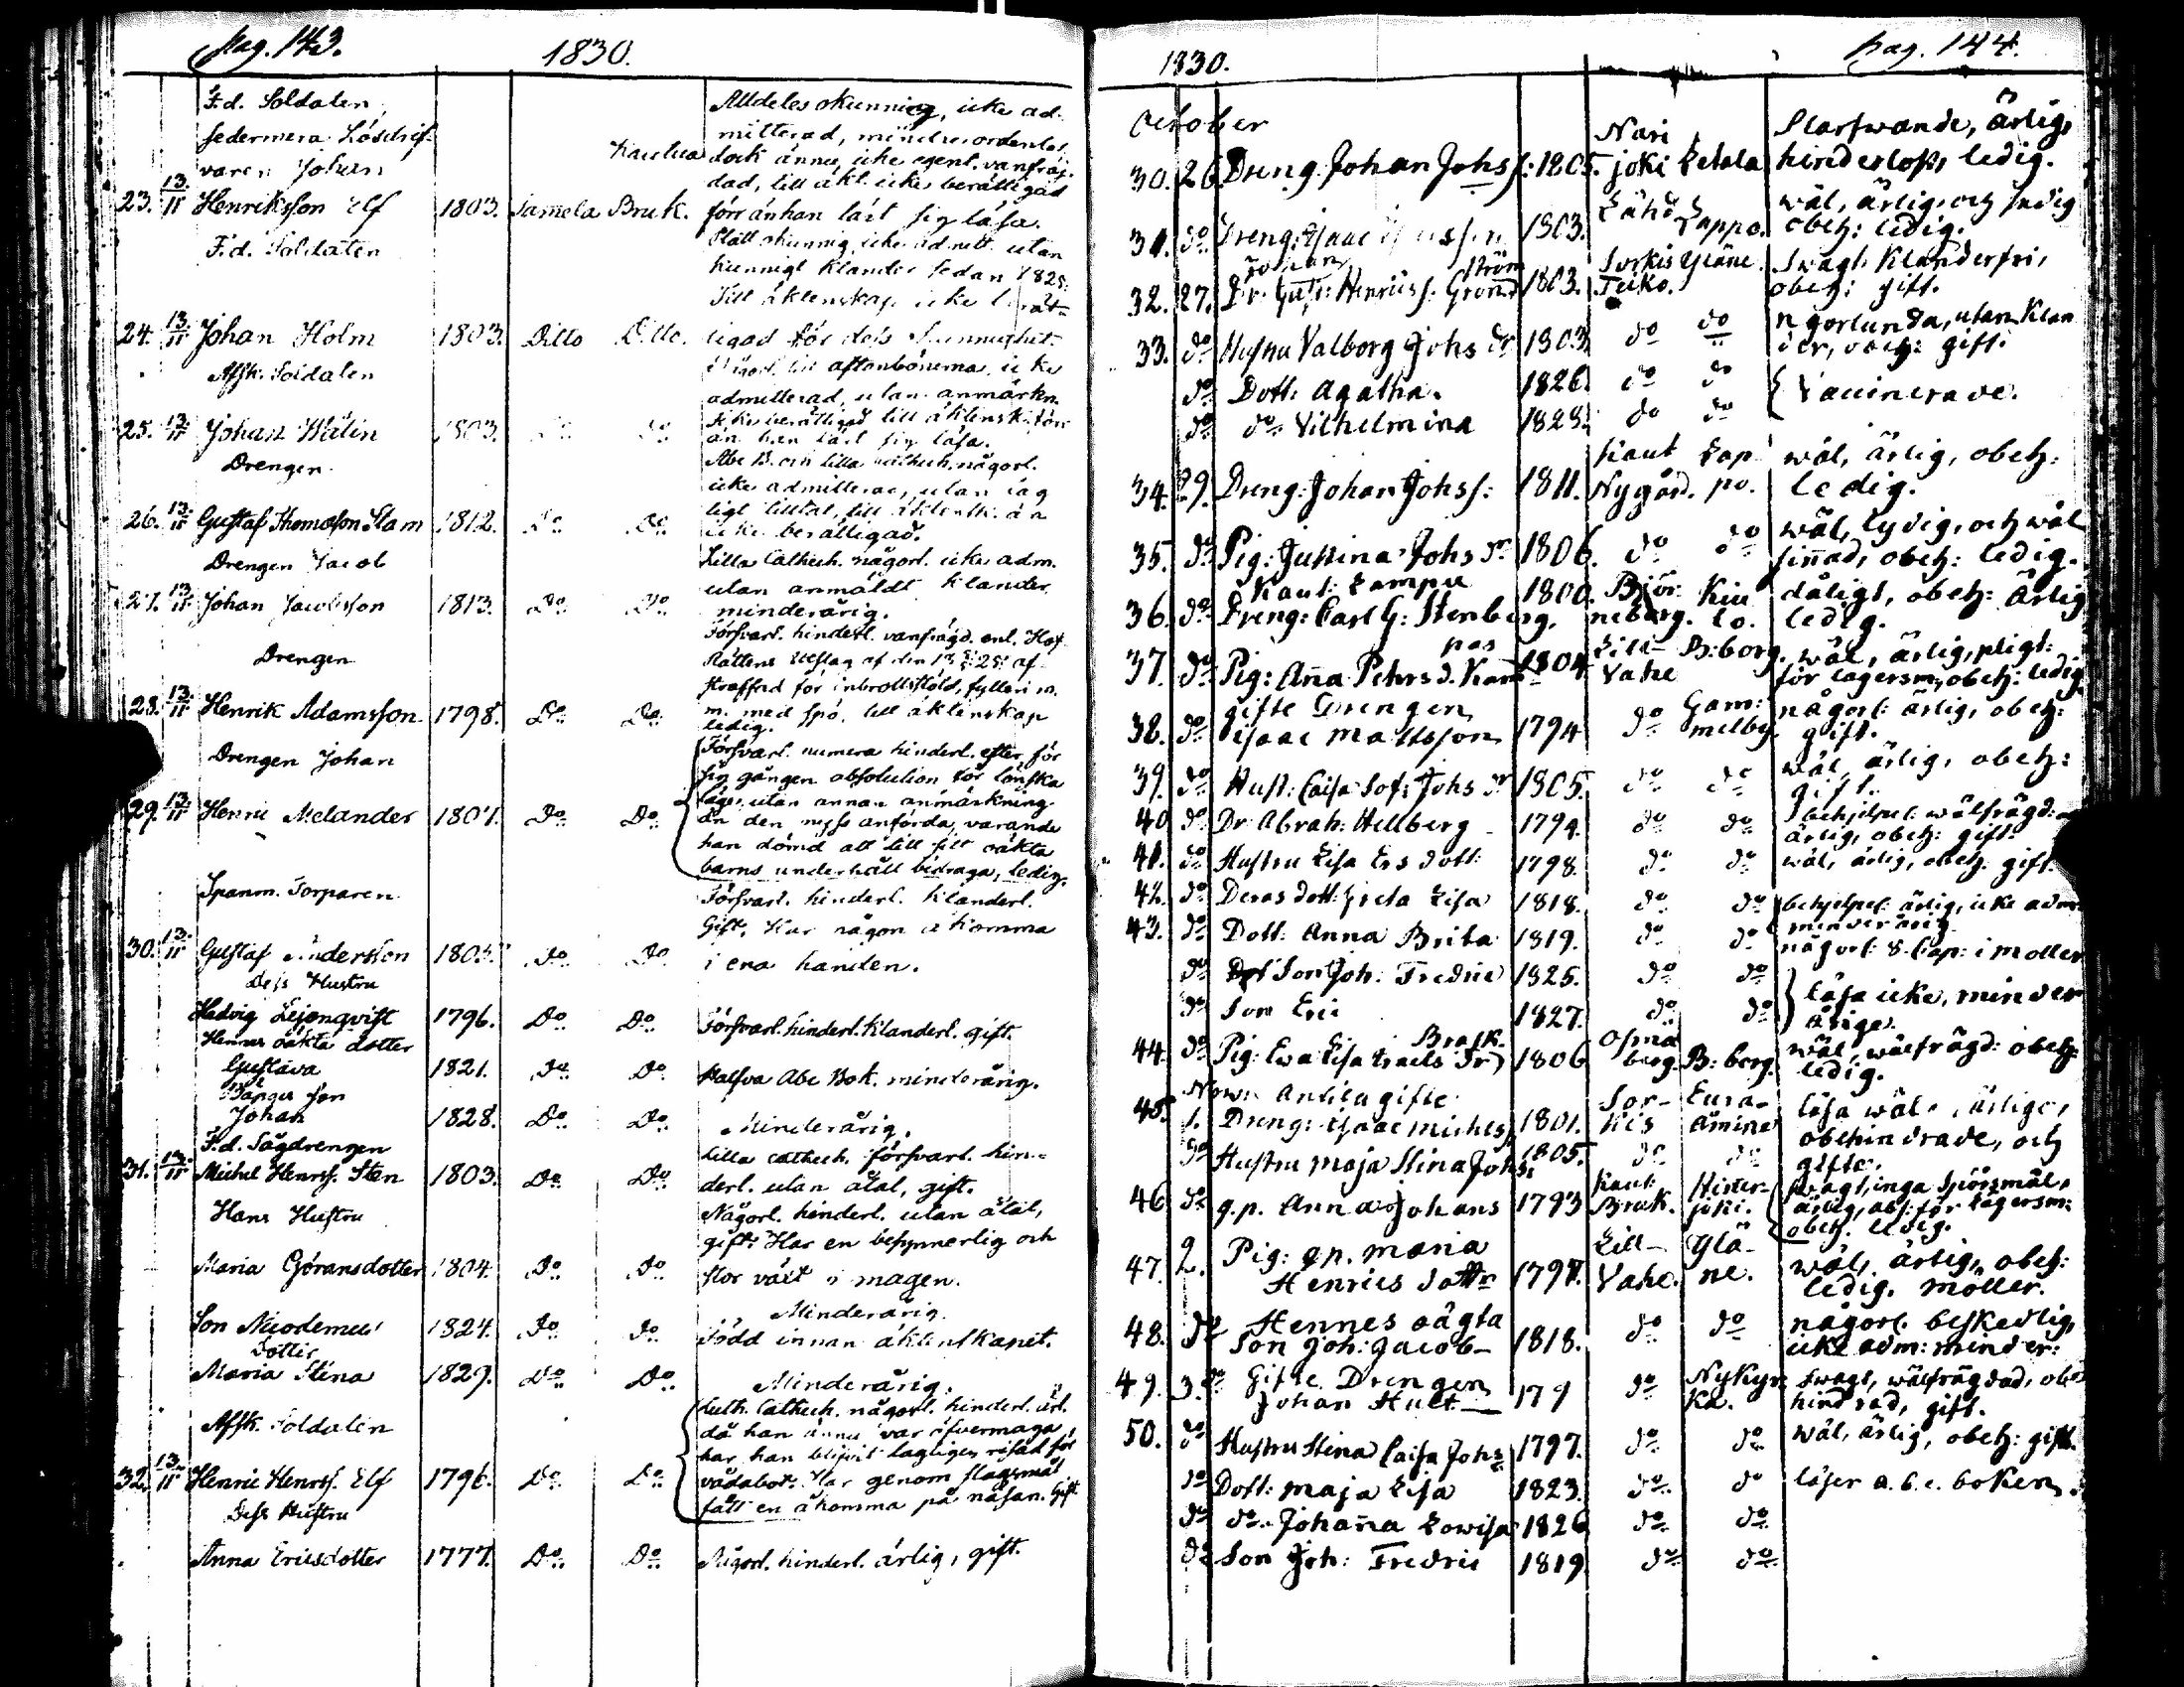 Pag. 143.
1830.
F.d. Soldaten,
sedermera Lösdrif-
varen Johan
23. 13/11 Henriksson Elf 1803. Jamela Bruk. Kauttua
Alldeles okunnig, icke ad-
mitterad, mindre ordentlig
dock ännu icke egent. vanfräj-
dad, till äkt. icke berättigad
förr än han lärt sig läsa.
F.d. Soldaten
24. 13/11 Johan Holm 1803. Ditto Ditto.
Slätt okunnig, icke admitt. utan
kunnigt klander sedan 1825.
Till äktenskap icke berät-
tigad för dess okunnighet.
Afsk. Soldaten
25. 13/11 Johan Wálin 1803. Do Do
Någorl. till aftonbönerna, icke
admitterad, utan anmärkn.
Icke berättigad till äktensk. förr
än han lärt sig läsa.
Drengen
26. 13/11 Gustaf Thomasson Stam 1812. Do Do
Abc B. och lilla cathech. någorl.
icke admitterad, utan lag
ligt tilltal, till äktensk. än
icke berättigad.
Drengen Jacob
27. 13/11 Johan Jacobsson 1813. Do Do
Lilla Cathech. någorl. icke adm.
utan anmäldt klander
minderårig.
Drengen
28. 13/11 Henrik Adamsson 1798. Do Do
Försvarl. hinderl. vanfrägd. enl. Hof-
Rättens Utslag af den 13 25 af-
straffad för inbrottsstöld, fylleri m.
m. med spö, till äktenskap
ledig.
Drengen Johan
29. 13/11 Henric Melander 1807. Do Do
Försvarl. numera hinderl. efter för
sig gången absolution för lönska
läger, utan annan anmärkning
än den nyss anförda, varande
han dömd att till sitt oäkta
barns underhåll bidraga, ledig.
Spanm. Torparen
30. 13/11 Gustaf Andersson 1805. Do Do
Försvarl. hinderl. klanderl.
Gift, Har någon å komma
i ena handen.
Dess Hustru
Hedvig Lejonqvist 1796. Do Do Försvarl. hinderl. klanderl. gift.
Hennes oäkta dotter
Gustava 1821. Do Do Halfva Abc Bok. minderårig.
Bägges son
Johan 1828. Do Do Minderårig.
F.d. Sågdrengen
31. 13/11 Michel Henrss. Sten 1803. Do Do
Lilla cathech. försvarl. hin-
derl. utan åtal, gift.
Hans Hustru
Maria Göransdotter 1804. Do Do
Någorl. hinderl. utan åtal,
gift. Har en besynnerlig och
stor växt i magen.
Son Nicodemus 1824. Do Do
Minderårig.
Född innan äktenskapet.
Dotter
Maria Stina 1829. Do Do Minderårig.
Afsk. Soldaten
32. 13/11 Henric Henrss. Elf 1796. Do Do
Luth. Cathech. någorl. hinderl. ärl.
då han ännu var öfvermaga
har han blifvit lagligen risad för
vådabot. Har genom slagsmål
fått en åkomma på näsan. Gift
Dess Hustru
Anna Ericsdotter 1777. Do Do Någorl. hinderl. ärlig, gift.
1830.
pag. 144.
October
30. 26 Dreng. Johan Johss: 1805. Nari joki Letala
Starfwande, ärlig,
hinderlöss, ledig.
31. do Dreng: Isaac 1803. Lähd Lappo.
wäl, ärlig, och sedig
obeh: ledig.
32. 27. Johan
Dr. Gust: Henrics. Grönd ström 1803. Sorkis Teiko. Yläne.
Swagt. Klanderfri,
obeh: gift.
33. do Hustru Valborg Johs dr 1803. do do
n gorlunda, utan Klan
der, obeh: gift.
do Dott: Agatha. 1826. do do
Vaccinerade.
do do Vilhelmina 1828. do do
34. 29. Dreng: Johan Johss: 1811. Kaut Nygård. Lap po.
wäl, ärlig, obeh:
ledig.
35. do Pig: Justina Johs dr 1806. do do
wäl, lydig, och wäl
sinnad, obeh: ledig.
Kaut: Lampu
36. do Dreng: Carl G: Stenberg. 1800. Björ neborg. Kiu lo.
dåligt, obeh: ärlig
ledig.
37. do Pig: Anna Pehrs d. Kam pas 1804. Lill- Vahe B:borg.
wäl, ärlig, pligt:
för lägersm. obeh: ledig
38. do gifte Drengen
Isaac Mattsson 1794 do Gam: melby.
någorl: ärlig, obeh:
gift.
39. do Hust: Caisa Sof: Johs dr 1805. do do
wäl, ärlig, obeh:
gift.
40 do Dr. Abrah: Hellberg 1794. do do
behjelpel: wälfrägd:
ärlig, obeh: gift.
41. do Hustru Lisa Ers dott: 1798. do do wäl, ärlig, obeh: gift.
42. do Deras dott: Greta Lisa 1818. do do
behjelpel: ärlig, icke adm:
minderårig
43. do Dott: Anna Brita 1819. do do någorl: 8. Cap: i Moller
do Son Joh: Fredric 1825. do do
läsa icke, minder
årige.
do Son Eric 1827. do do
44. do Pig: Ewa Lisa Israels dr Brask. 1806 Osmä berg. B:borg.
wäl, wälfrägd: obeh:
ledig.
Now: Antita gifte
45. 1. Dreng: Isaac Michels. 1801. Sor- kis Eura- åminne
läsa wäl, ärlige,
obehindrade, och
gifte.
do Hustru Maja Stina Johs: 1805. do do
46 do g.p. Anna Johans 1793 Kaut Bruk. Hister- joki.
swagt, inga spörsmål,
ärlig, abs: för lägersm:
obeh: ledig.
47. 2. Pig: gp. Maria
Henrics dottr 1797. Lill- Vahe. Ylä- ne.
wäl, ärlig, obeh:
ledig. Möller.
48. do Hennes oägta
Son Joh: Jacob 1818. do do
någorl. beskedlig,
icke adm: minder:
49. 3. Gifte Drengen
Johan Hult 179 do Nykyr: ka.
Swagt, wälfrägdad, obe
hindrad, gift.
50. do Hustru Stina Caisa Johs 1797. do do wäl, ärlig, obeh: gift.
do Dott: Maja Lisa 1823. do do läser a. b. c. boken.
do do Johanna Lowisa 1826 do do
do Son Joh: Fredric 1819 do do